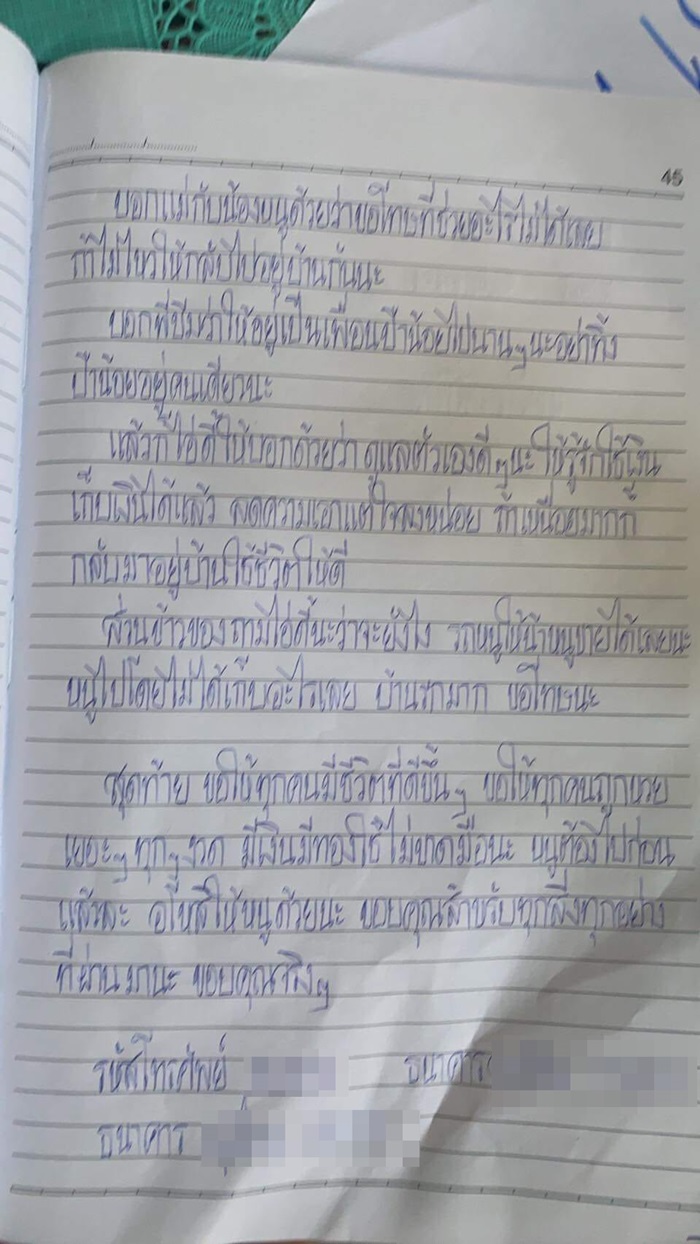 45
บอกแม่กับน้องหนูด้วยว่าขอโทษที่ช่วยอะไรไม่ได้เลย
ถ้าไม่ไหวให้กลับไปอยู่บ้านกันนะ
บอกพี่บีมว่าให้อยู่เป็นเพื่อนป้าน้อยไปนานๆนะอย่าทิ้ง
ป้าน้อยอยู่คนเดียวนะ
แล้วก็ไอ่ดี้ให้บอกด้วยว่า ดูแลตัวเองดีๆนะ ให้รู้จักใช้เงิน
เก็บเงินได้แล้ว ลดความเอาแต่ใจลงหน่อย ถ้าเหนื่อยมากก็
กลับมาอยู่บ้านใช้ชีวิตให้ดี
ส่วนข้าวของถามไอ่ดี้นะว่าจะยังไง รถหนูให้น้าหนูขายได้เลยนะ
หนูไปโดยไม่ได้เก็บอะไรเลย บ้านรกมาก ขอโทษนะ
สุดท้าย ขอให้ทุกคนมีชีวิตที่ดีขึ้นๆ ขอให้ทุกคนถูกหวย
เยอะๆ ทุกๆงวด มีเงินมีทองใช้ไม่ขาดมือนะ หนูต้องไปก่อน
แล้วละ อโหสิให้หนูด้วยนะ ขอบคุณสำหรับทุกสิ่งทุกอย่าง
ที่ผ่านมานะ ขอบคุณจริงๆ
รหัสโทรศัพย์ ธนาคาร
ธนาคาร